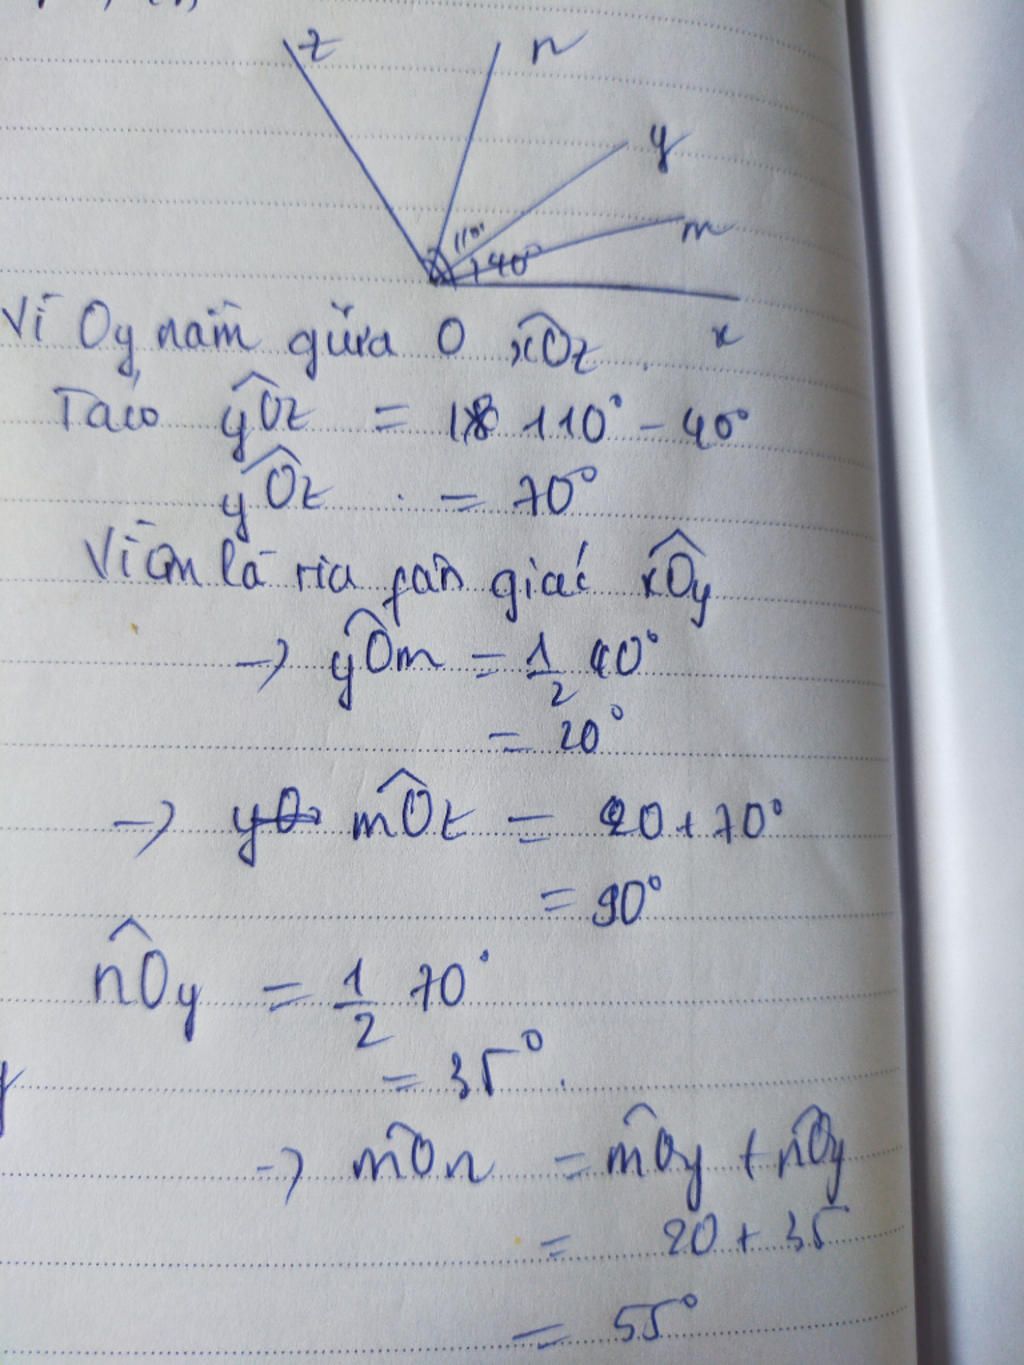 z n
y
m
110°
40°
x
Vì Oy nằm giữa O xÔz
Ta có yÔz = 18 110° - 40°
yÔz = 70°
Vì Om là tia fân giác xÔy
→ yÔm = 1/2 40°
= 20°
→ yO mÔz = 20 + 70°
= 90°
nÔy = 1/2 70°
= 35°.
→ mÔn = mÔy + nÔy
= 20 + 35
= 55°